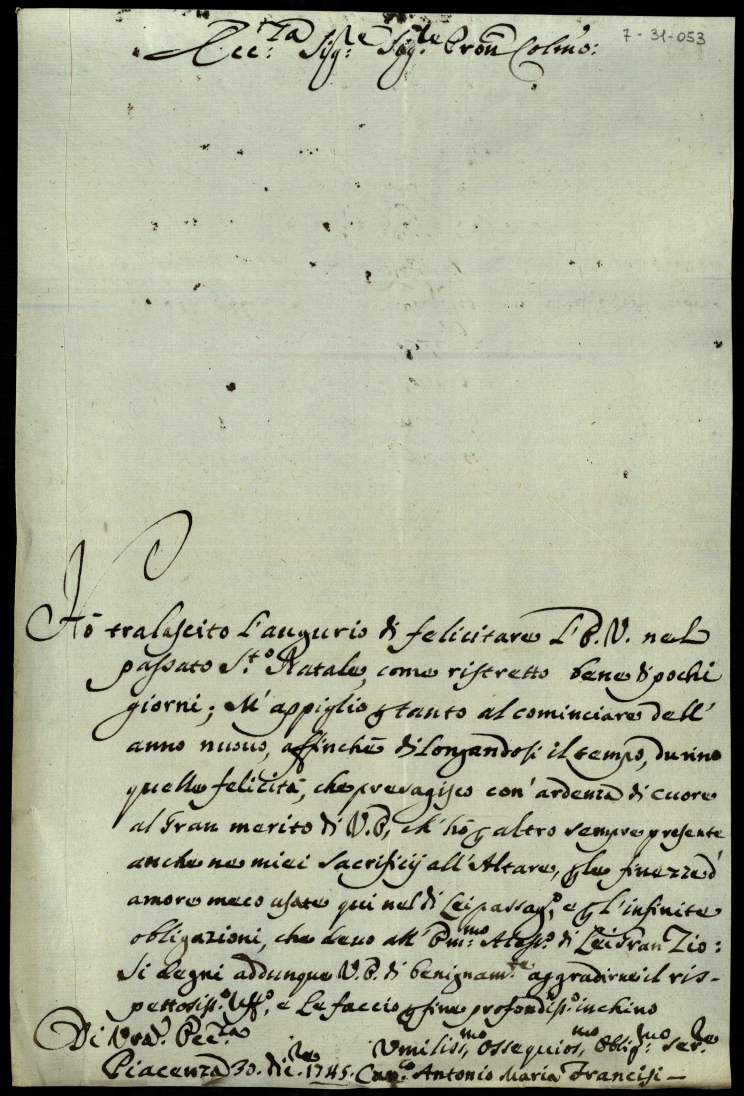 Ecc.za Sig.re Sig.re Pron Colmo:
7-31-053
Hò tralascito l'augurio di felicitare l'E.V. nel
passato S.to Natale, come ristretto bene di pochi
giorni; M'appiglio p tanto al cominciare dell'
anno nuovo, affinchè dilongandosi il tempo, durino
quelle felicità, che presagisco con'ardenza di cuore
al Gran merito di V.E., ch'hò p altro sempre presente
anche ne miei sacrificij all'Altare, p le finezze d'
amore meco usate qui nel di Lei passag.o, e p l'infinite
obligazioni, che devo all' Em.mo di Lei Gran Zio:
Si degni addunque V.E. di benignam.te aggradirne il ris-
pettosiss.o Uff.o, e Le faccio p fine profondiss.o inchino
Di Vra. Ecc.za
Umiliss.mo Ossequios.mo Oblig.mo Ser.re
Piacenza 30. Dic.re 1745. Can.co Antonio Maria Francisi